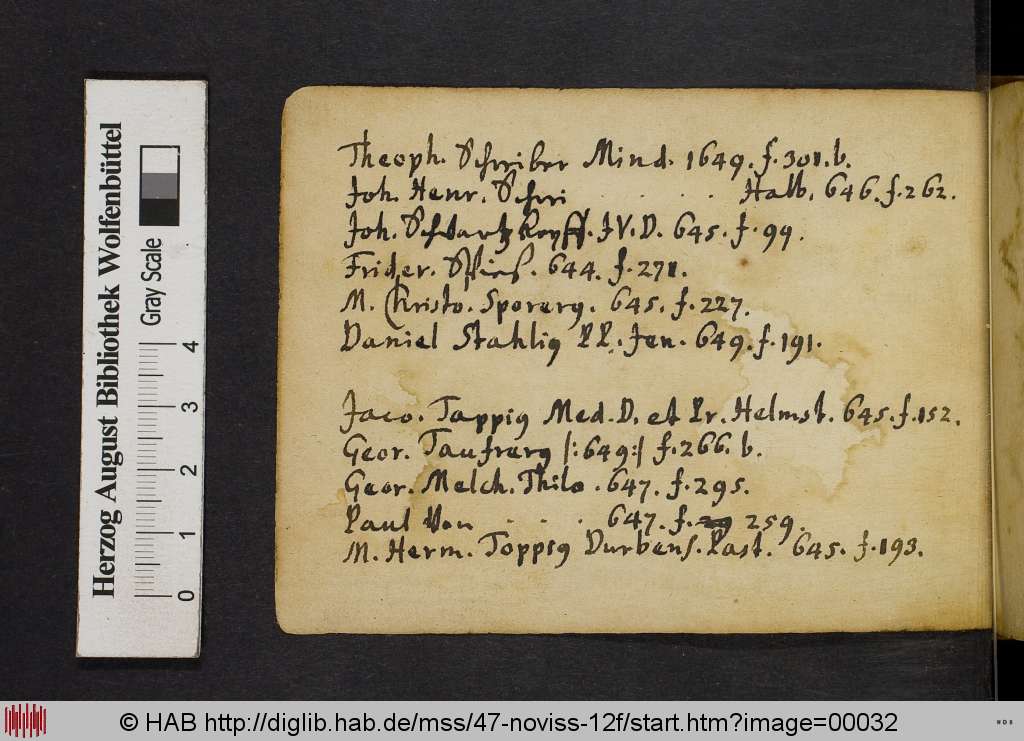 Theoph. Schreiber Mind. 1649. f. 301. b.
Joh. Henr. Schri . . . . . . Halb. 646. f. 262.
Joh. Schvartzkopff. JV. D. 645. f. 99.
Frider. Spies. 644. f. 271.
M. Christo. Sporerg. 645. f. 227.
Daniel Stahlig P.P. Jen. 649. f. 191.
Jaco. Tappig Med. D. et Pr. Helmst. 645. f. 152.
Geor. Taufrerg |: 649 :| f. 266. b.
Geor. Melch. Thilo. 647. f. 295.
Paul Von . . . . 647. f. 259.
M. Herm. Toppig Durbens. Past. 645. f. 193.
Herzog August Bibliothek Wolfenbüttel
Gray Scale
0 1 2 3 4
© HAB http://diglib.hab.de/mss/47-noviss-12f/start.htm?image=00032